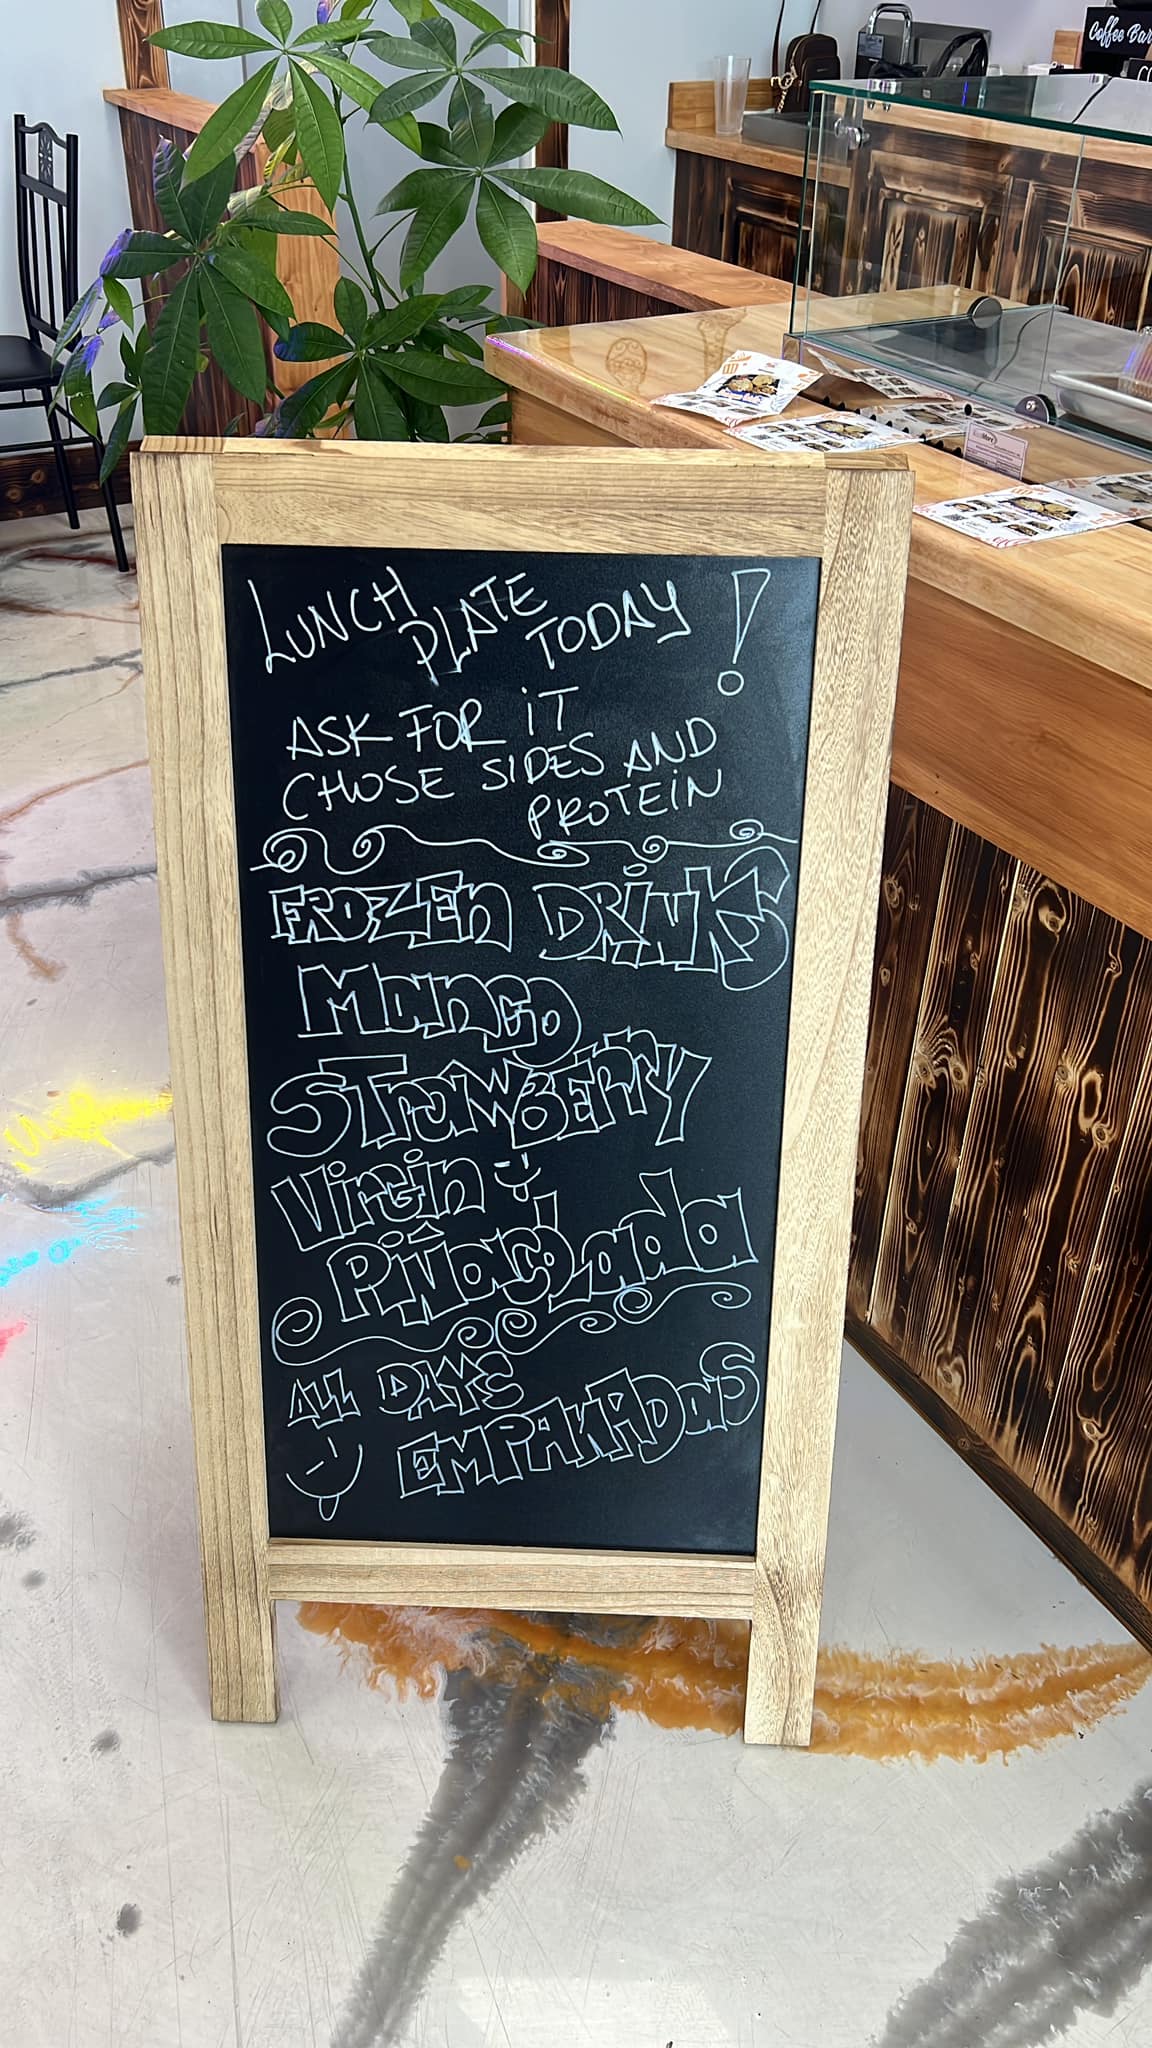 Coffee Bar
LUNCH PLATE TODAY!
ASK FOR iT
CHOSE SIDES AND
PROTEiN
FROZEN DRiNKS
Mango
STrawBERRY
Virgin
PiÑacoLada
ALL DAYS
EMPANADaS